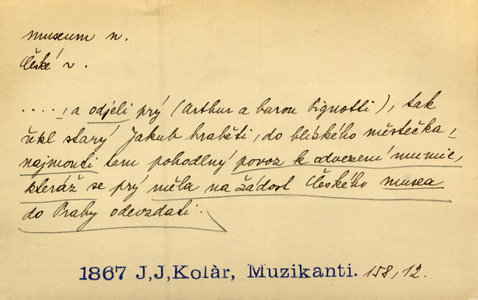 museum n.
České ~.
....., a odjeli prý (Arthur a baron Pignotti), tak
řekl starý Jakub hraběti, do blízkého městečka,
najmouti tam pohodlný povoz k odvezení mumie,
kteráž se prý měla na žádost Českého musea
do Prahy odevzdati.
1867 J,J,Kolàr, Muzikanti. 158,12.